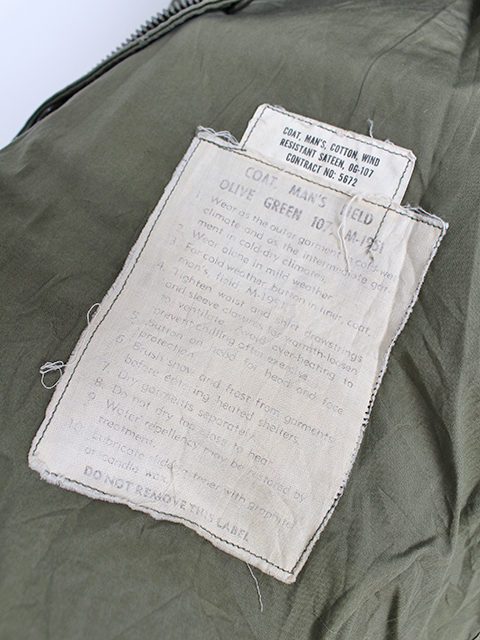 COAT, MAN'S, COTTON, WIND
RESISTANT SATEEN, OG-107
CONTRACT NO: 5672
COAT, MAN'S FIELD
OLIVE GREEN 107, M-1951
1. Wear as the outer garment in cold-wet
climate and as the intermediate gar-
ment in cold-dry climates.
2. Wear alone in mild weather.
3. For cold weather button in liner, coat,
man's, field, M-1951
4. Tighten waist and skirt drawstrings
and sleeve closures for warmth-loosen
to ventilate. Avoid over-heating to
prevent chilling after exercise.
5. Button on hood for head and face
protection.
6. Brush snow and frost from garments
before entering heated shelters.
7. Dry garments separately.
8. Do not dry too close to heat.
9. Water repellency may be restored by
treatment.
10. Lubricate slide fastener with graphite
or candle wax.
DO NOT REMOVE THIS LABEL